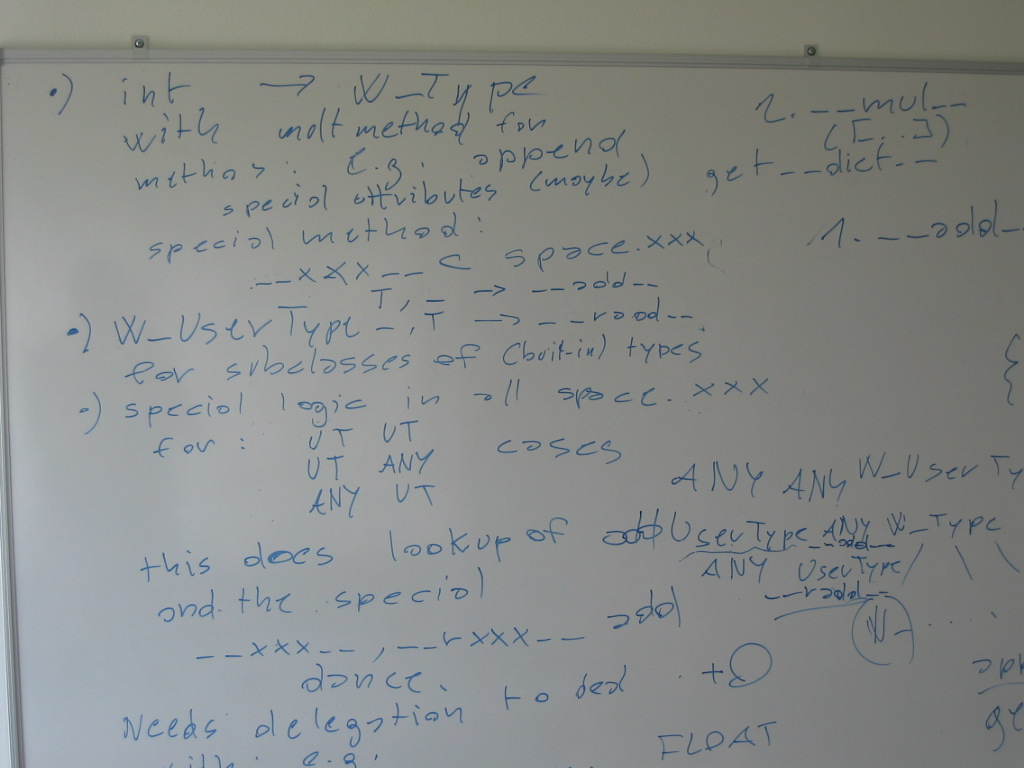 •) int → W_Type
with multmethod for
methos: e.g. append
special attributes (maybe)
special method:
__xxx__ ⊂ space.xxx
T, _ → __add__
•) W_UserType _, T → __radd__
for subclasses of (buit-in) types
•) special logic in all space.xxx
for: UT UT cases
UT ANY
ANY UT
this does lookup of add
and the special
__xxx__, __rxxx__ add
dance.
Needs delegation to
e.g.
2. __mul__
([,.])
get __dict__
1. __add__
{
ANY ANY W_UserTy
UserType ANY W_Type
__add__
ANY UserType
__radd__
W_ ....
+
FLOAT
app
ge